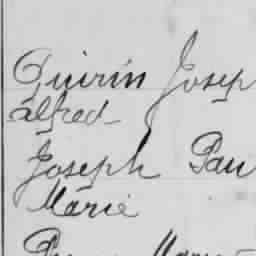 Quirin Josep
alfred
Joseph Pau
Marie